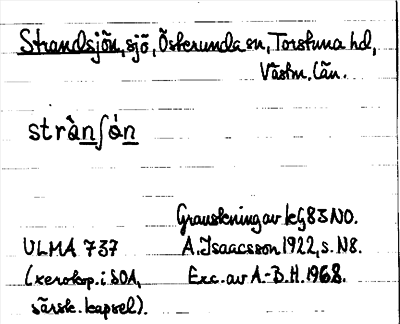 Strandsjön, sjö, Österunda sn, Torstuna hd,
Västm. län.
stràn∫ón
Granskning av kG 83 NO.
ULMA 737 A. Isaacsson 1922, s. N8.
(xerokop. i SOA, Exc. av A.-B. H. 1968.
särsk. kapsel).